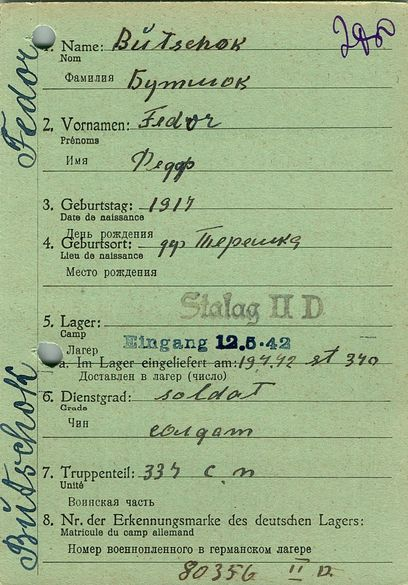 280
Fedor
Bútschok
1. Name: Bútschok
Nom
Фамилия Бутшок
2. Vornamen: Fedor
Prénoms
Имя Федор
3. Geburtstag: 1917
Date de naissance
День рождения
4. Geburtsort: др Терешка
Lieu de naissance
Место рождения
Stalag II D
5. Lager:
Camp
Лагерь
Eingang 12.5.42
a. Im Lager eingeliefert am: st 340
Доставлен в лагерь (число)
6. Dienstgrad: soldat
Grade
Чин солдат
7. Truppenteil: 337 с.п
Unité
Воинская часть
8. Nr. der Erkennungsmarke des deutschen Lagers:
Matricule du camp allemand
Номер военнопленного в германском лагере
80356 II D.